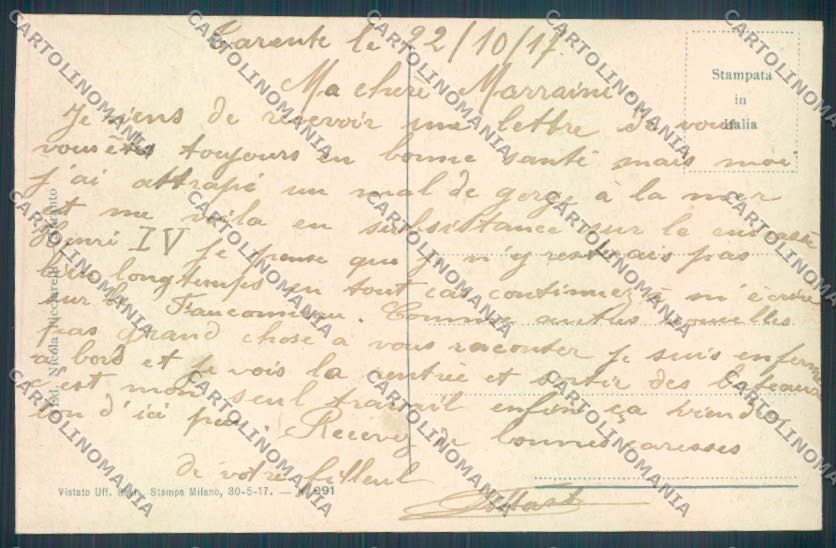 Tarente le 22/10/17
Ma chere Marraine.
Stampata
in
Italia
Je viens de recevoir une lettre de vous
vous êtes toujours en bonne santé mais moi
j'ai attrapé un mal de gorge à la mer
et me voila en subsistance sur le cuirassé
Henri IV je pense que je n'y resterais pas
bien longtemps en tout cas continuez à m'écrire
sur le Fauconneau. Comme autres nouvelles
pas grand chose à vous raconter je suis enfermé
a bord et je vois la rentrée et sortir des bateaux
c'est mon seul travail enfin ça viendra
bon d'ici peu. Recevez de bonnes caresses
de votre filleul
Ed. Nicola Ricciarelli, Taranto
Vistato Uff. Rev. Stampa Milano, 30-5-17. — 991
CARTOLINOMANIA